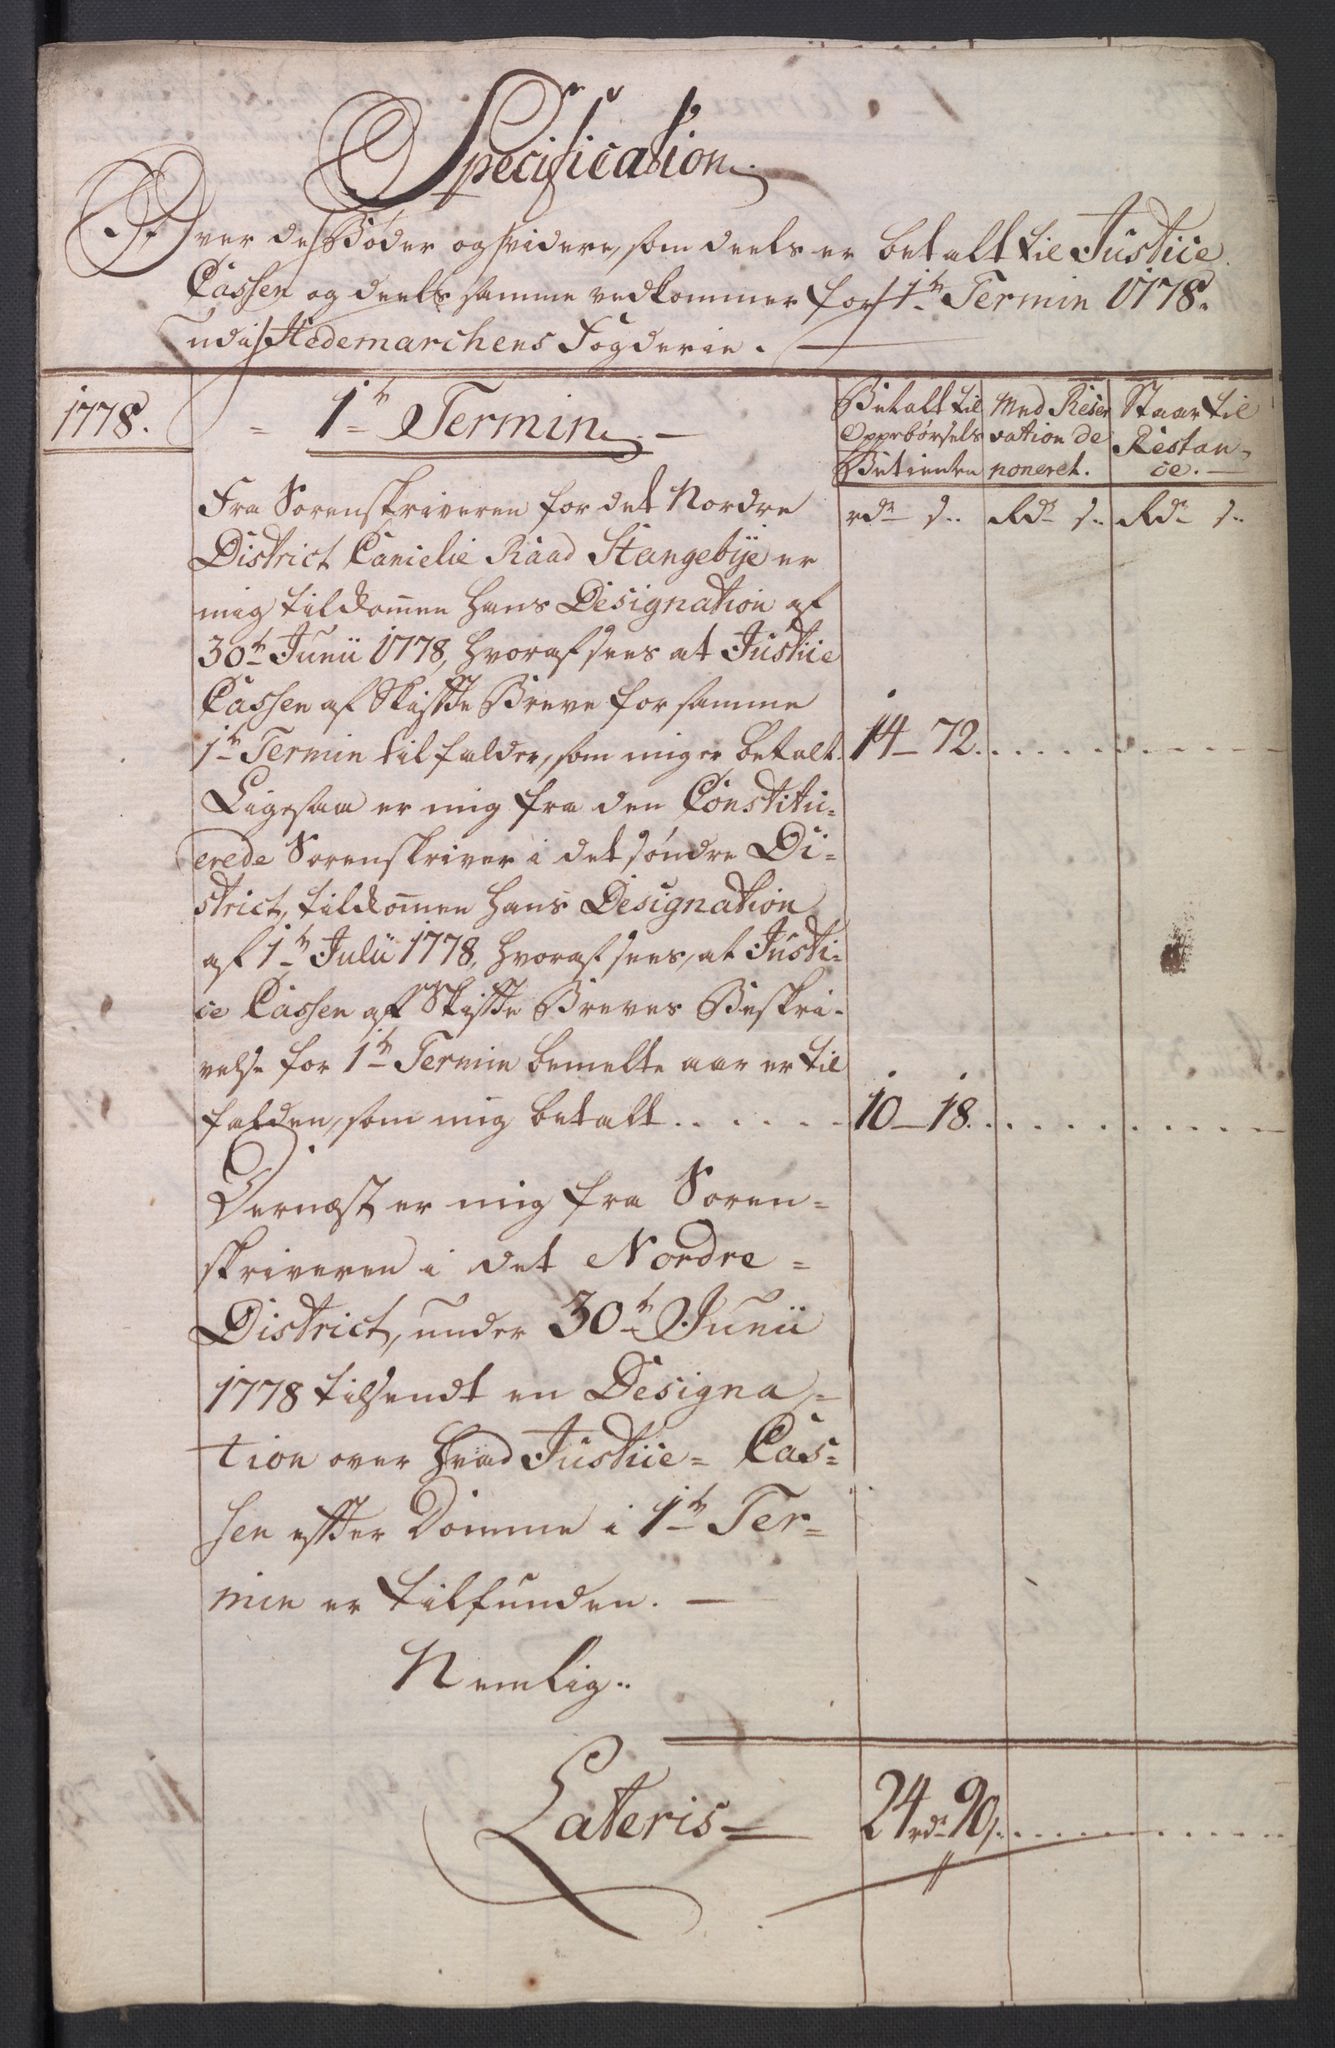 Specification
Over de Bøder og videre, som deels er betalt til Justice
Cassen og deels samme vedkommer for 1te Termin 1778.
udi Hedemarchens Fogderie.
1778.
1te Termin
Betalt til
Oppebørsels
Betienten
Med Reser
vation de
poneret.
Staar til
Restan-
ce.
rdr s..
Rdr s..
Rdr s..
Fra Sorenskriveren for det Nordre
District Cancelie Raad Stangebye er
mig tilkomen hans Designation af
30te Junii 1778, hvoraf sees at Justice
Cassen af Skifte Breve for samme
1te Termin tilfalder, som mig er betalt.
14 – 72.
Ligesaa er mig fra den Constitu-
erede Sorenskriver i det søndre Di-
strict, tilkomen hans Designation
af 1te Julii 1778, hvoraf sees, at Justi-
ce Cassen af Skifte Breves Beskri-
velse for 1te Termin bemelte aar er til
falden, som mig betalt . . . . . .
10 – 18.
Dernæst er mig fra Soren-
skriveren i det Nordre
District, under 30te Junii
1778 tilsendt en Designa-
tion over hvad Justice- Cas-
sen efter Domme i 1te Ter-
min er tilfunden. —
Nemlig..
Lateris
24 rdr 90 s.